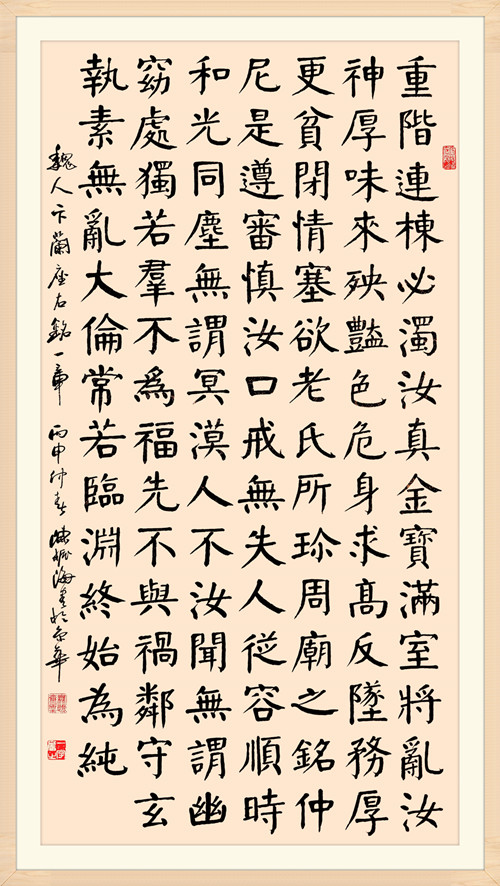 重階連棟必濁汝真金寶滿室將亂汝
神厚味來殃豔色危身求髙反墜務厚
更貧閉情塞欲老氏所珎周廟之銘仲
尼是遵審慎汝口戒無失人從容順時
和光同塵無謂冥漠人不汝聞無謂幽
窈處獨若羣不爲福先不與禍鄰守玄
執素無亂大倫常若臨淵終始為純
魏人卞蘭座右銘一章 丙申仲春 海書於京華